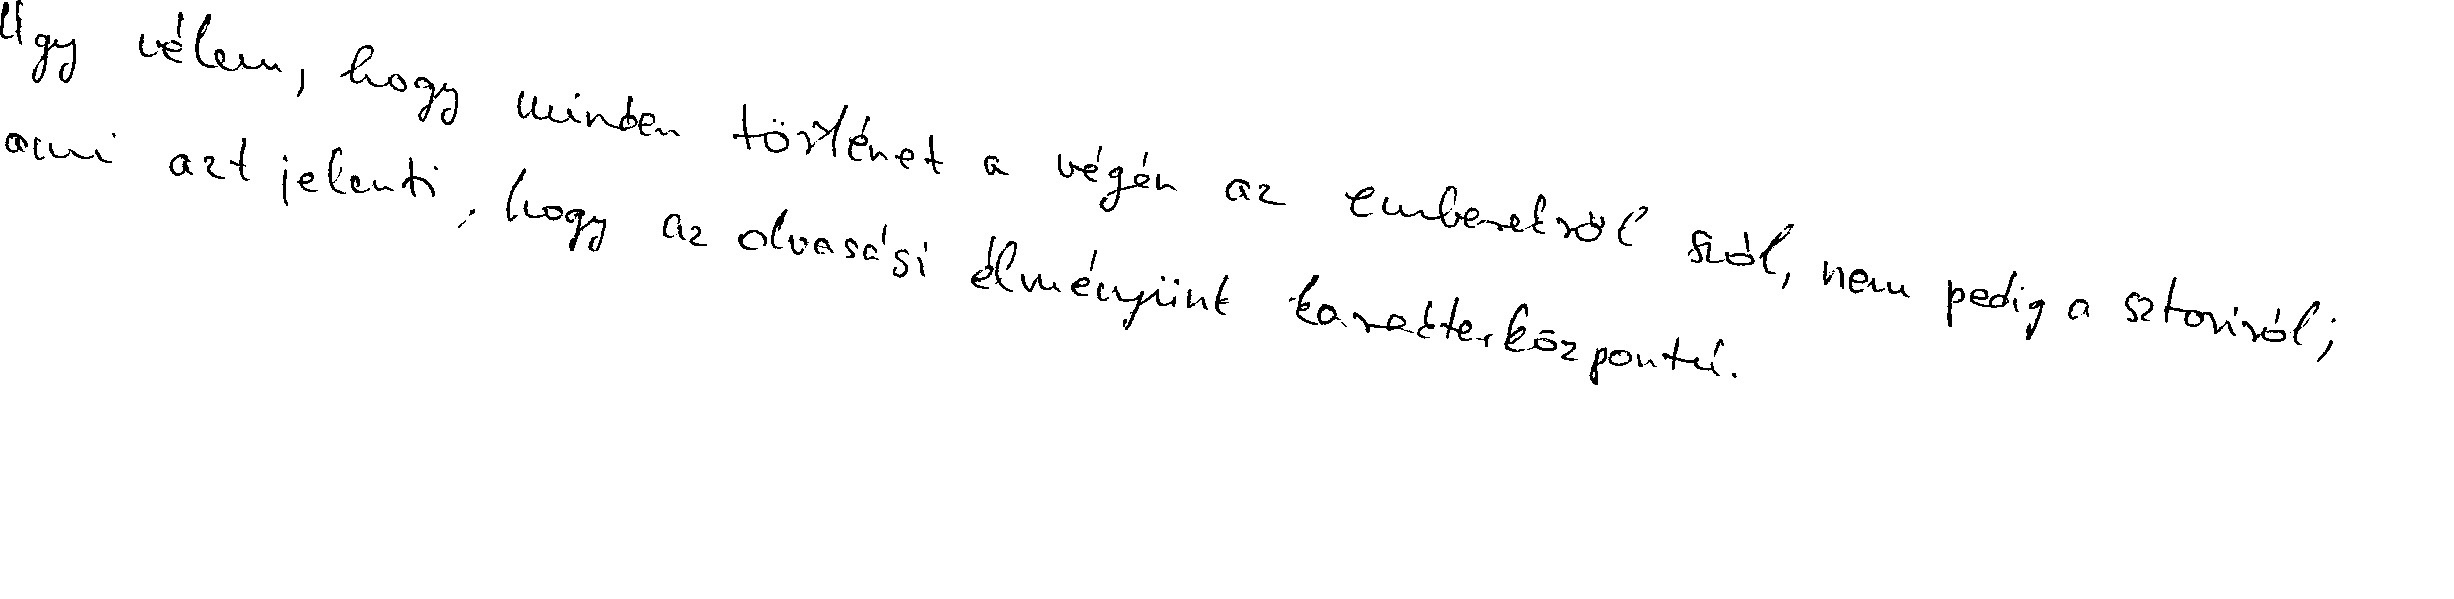 Úgy vélem, hogy minden történet a végén az emberekről szól, nem pedig a sztoriról;
ami azt jelenti, hogy az olvasási élményünk karakterközpontú.